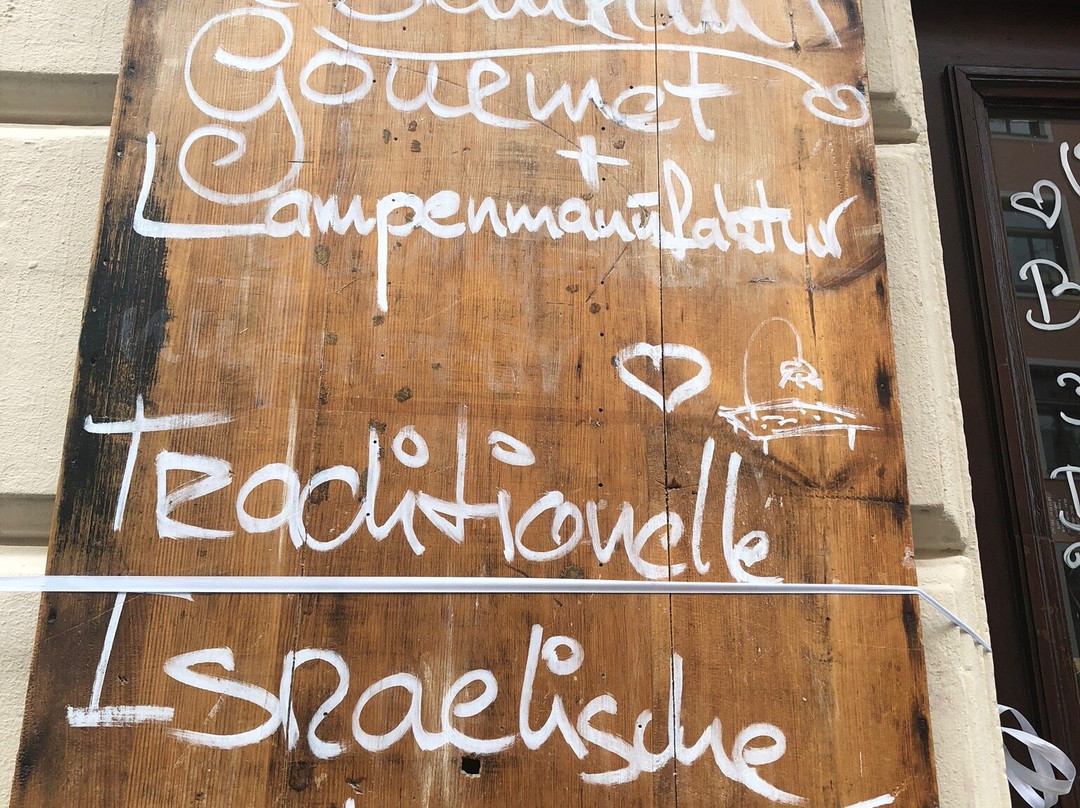 Gouemet
+
Lampenmanufaktur
Traditionelle
Israelische
B
3